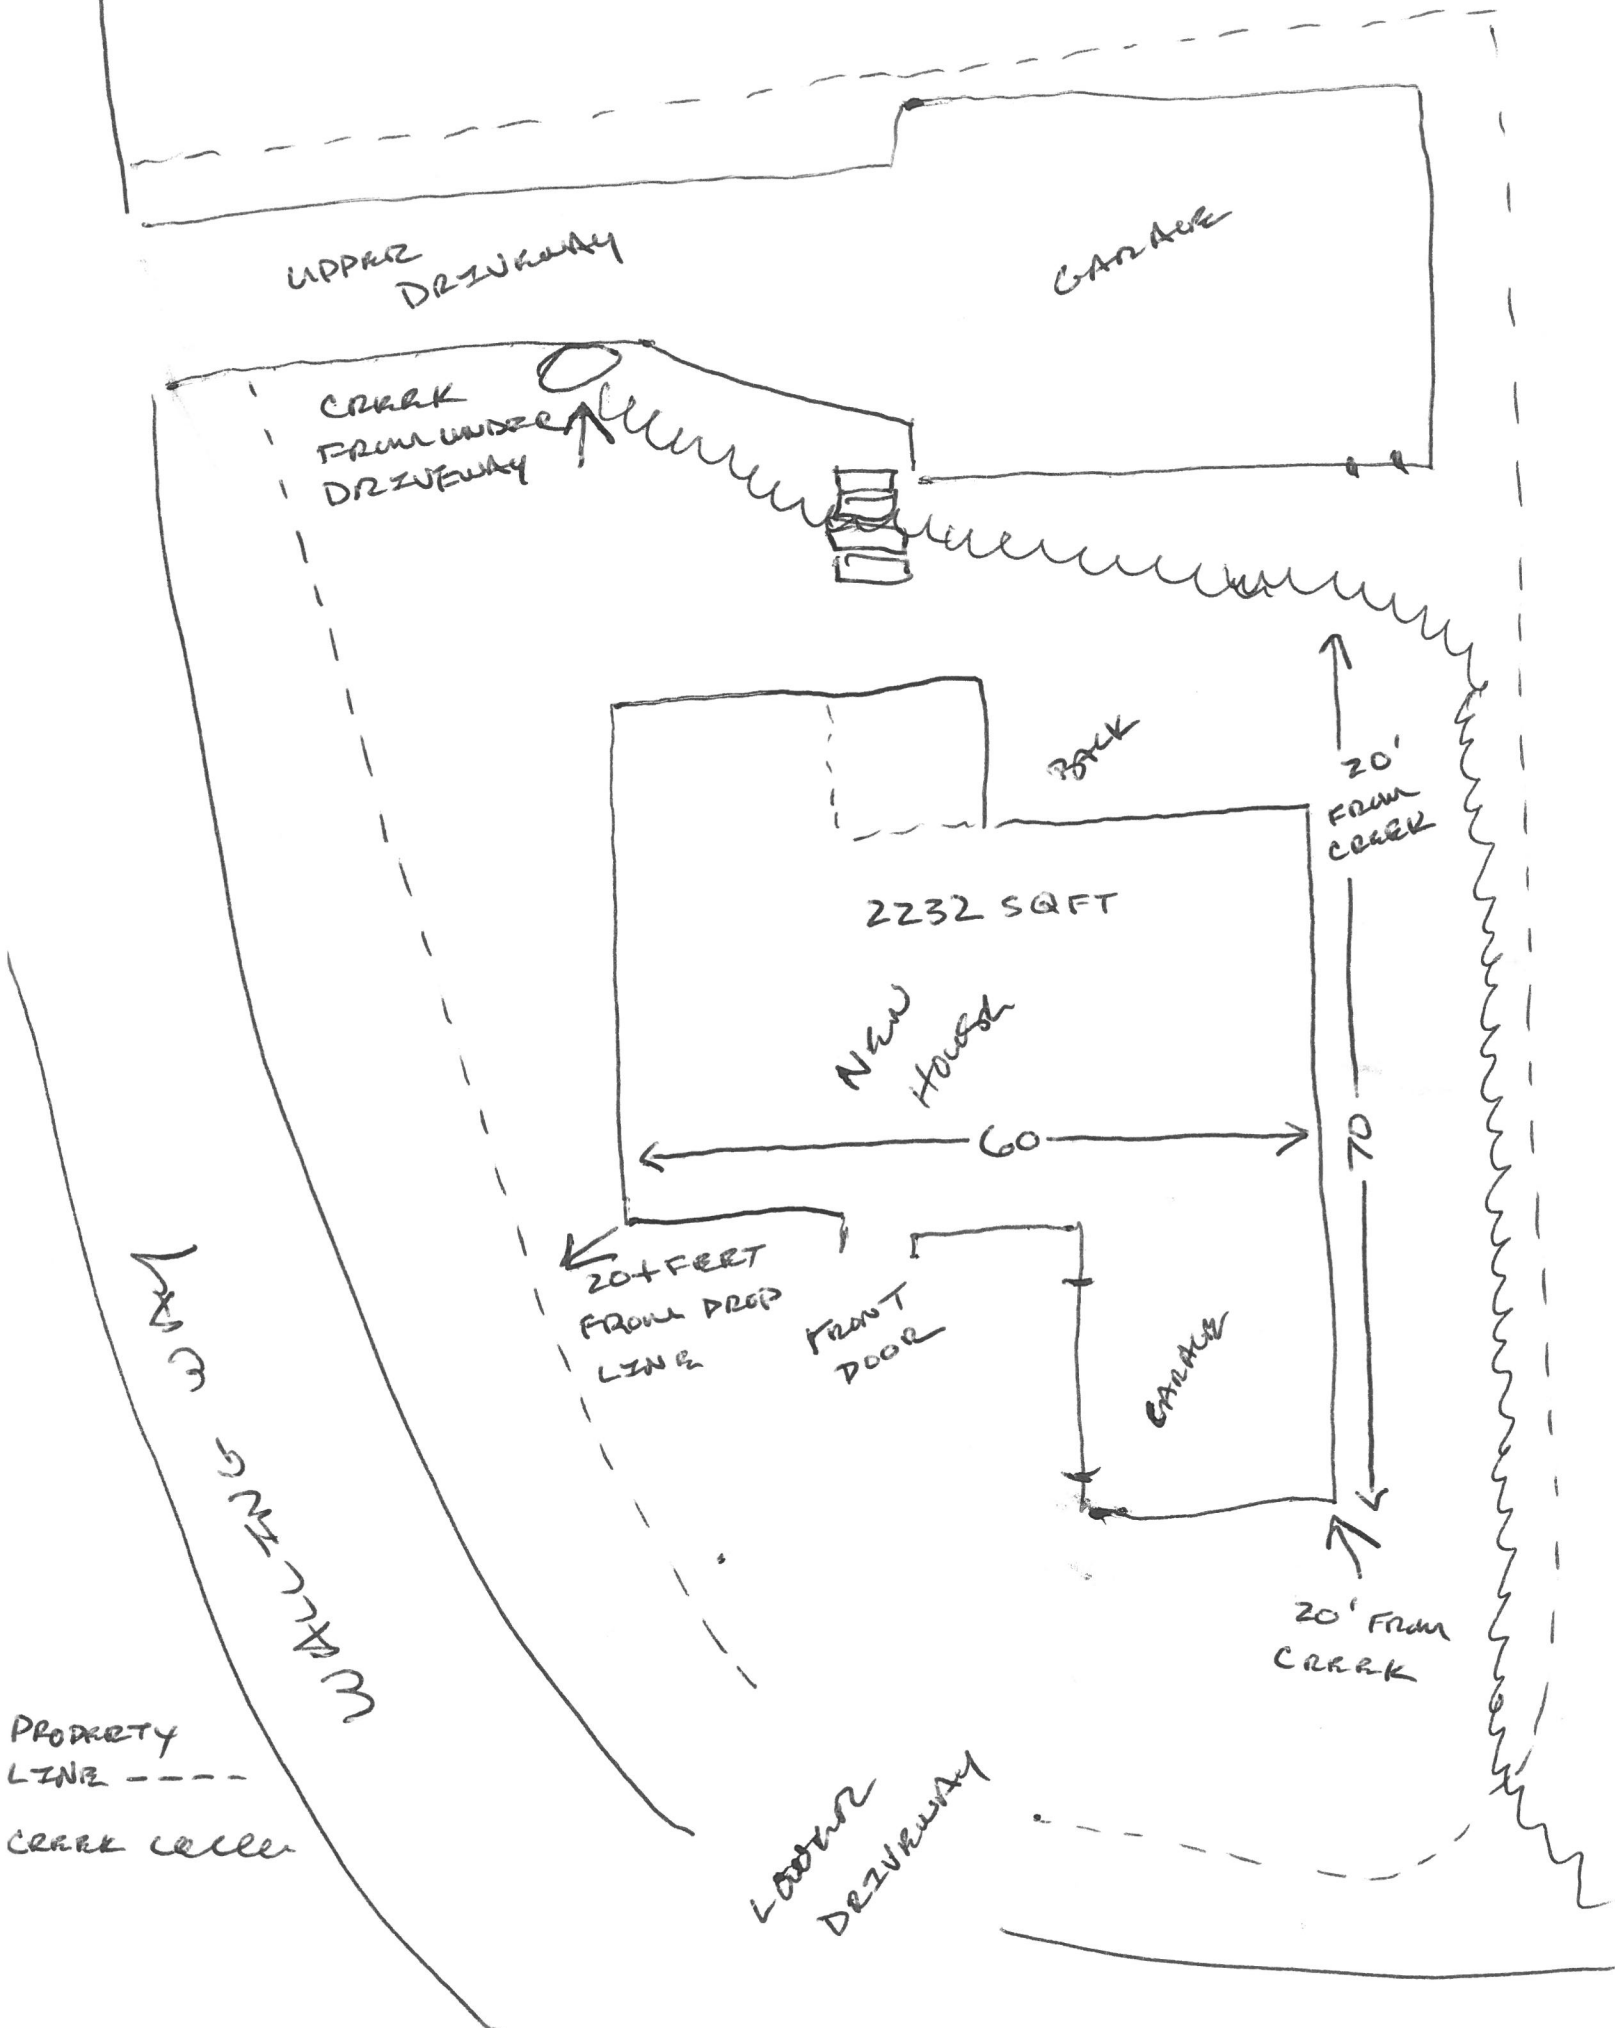 UPPER
DRIVEWAY
GARAGE
CREEK
FROM UNDER
DRIVEWAY
BACK
20'
FROM
CREEK
2232 SQFT
NEW
HOUSE
60
70
20+ FEET
FROM DROP
LINE
FRONT
DOOR
GARAGE
20' FROM
CREEK
WALLING WAY
PROPERTY
LINE ----
CREEK
LOWER
DRIVEWAY